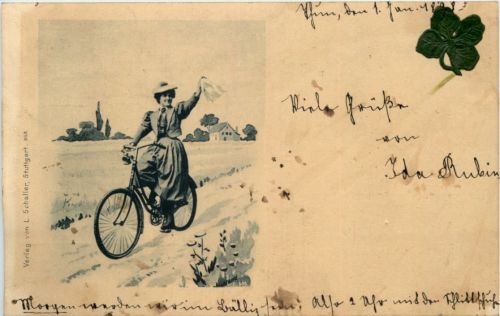 Thun, den 1. Jan. 1898.
Viele Grüße
von
Ida Rubin
Verlag von L. Schaller, Stuttgart.
Morgen werden wir im Bällig sein; Also 2 Uhr mit den Schlittschuh